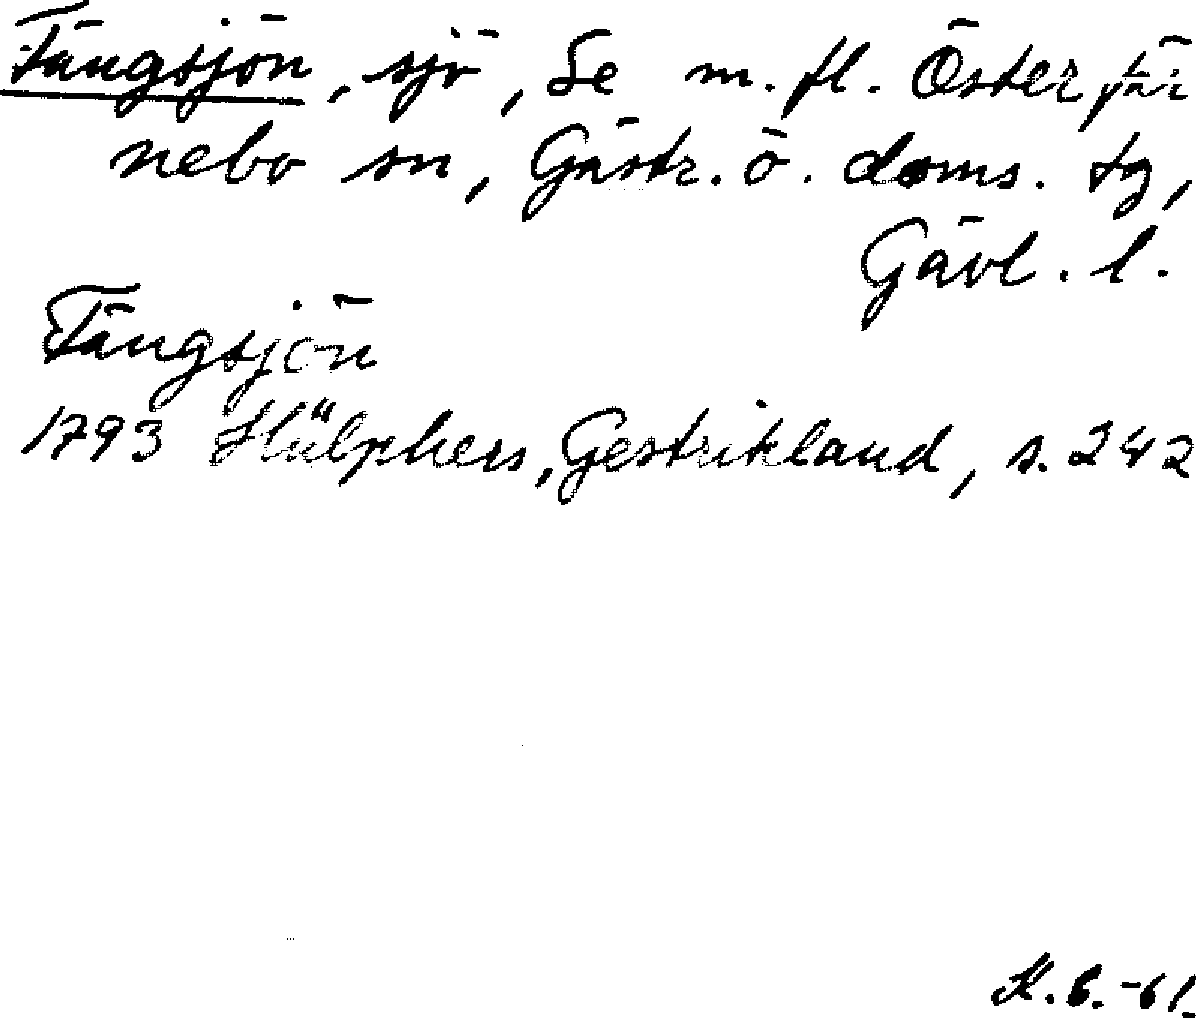 Tängsjön, sjö, Se m. fl. Österfär
nebo sn, Gästr. ö. doms. tg,
Gävl. l.
Tängsjön
1793 Hülphers, Gestrikland, s. 242
K. G. -61.